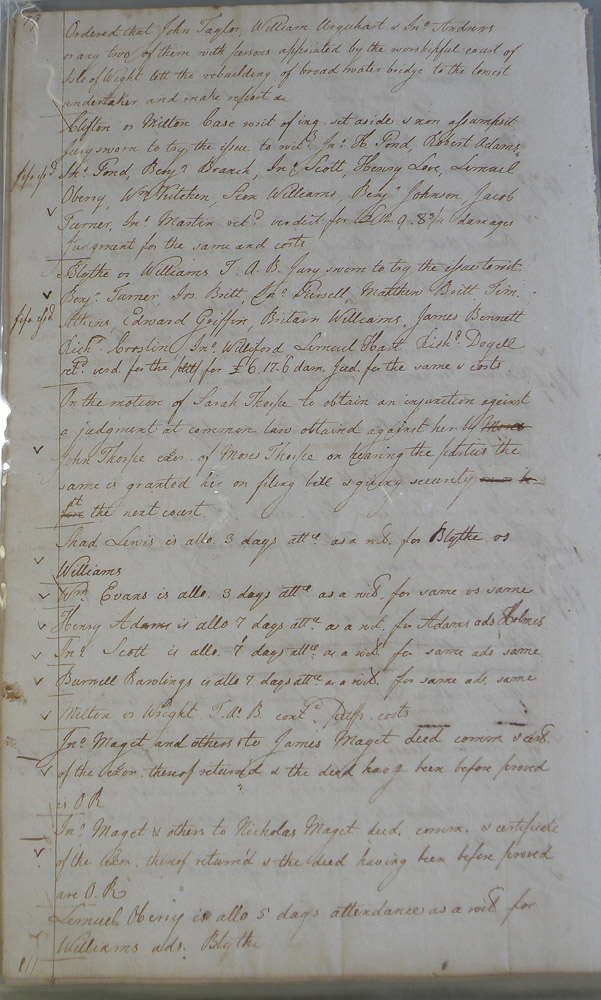 Ordered that John Taylor, William Urquhart & Jno. Andrews
or any two of them with persons appointed by the worshipful court of
Isle of Wight lett the rebuilding of broad water bridge to the lowest
undertaker and make report &c
Clifton vs Milton Case writ of inq. set aside & non assumpsit
Jury sworn to try the issue to wit. Jno. H. Pond, Robert Adams,
Pond, Benj. Branch, Jno. Scott, Henry Love, Lemuel
Oberry, Wm. Kitchen, Williams, Benj. Johnson, Jacob
Turner, Jno. Martin retd. verdict for 9.8 damages
Judgment for the same and costs
Blythe vs Williams T. A. B. Jury sworn to try the issue to wit.
Benj. Turner, Jos. Britt, Jno. Pursell, Matthew Britt, Tim.
Atkins, Edward Griffin, Britain Williams, James Bennett
Richd. Croslin, Jno. Williford Lemuel Hart Richd. Doyell
retd. verd. for the pltf for £6.17.6 dam. Jud. for the same & costs.
On the motion of Sarah Thorpe to obtain an injunction against
a judgment at common law obtained against her by Moses
John Thorpe exor. of Moses Thorpe on hearing the parties the
same is granted her on filing bill & giving security
the next court.
Shad. Lewis is allo. 3 days atta. as a wit. for Blythe vs
Williams
Wm. Evans is allo. 3 days atta. as a wit. for same vs same
Henry Adams is allo 7 days atta. as a wit. for Adams ads Holmes
Jno. Scott is allo. 7 days atta. as a wit. for same ads same
Burwell Rawlings is allo 7 days atta. as a wit. for same ads same
Milton vs Wright T. A. B. contd. costs
Jno. Maget and others to James Maget deed comm. & cert.
of the exon. thereof return'd & the deed havg been before proved
is O. R
Jno. Maget & others to Nicholas Maget deed, comm. & certificate
of the exon. thereof return'd & the deed having been before proved
are O. R
Lemuel Oberry is allo 5 days attendance as a wit. for
Williams ads. Blythe